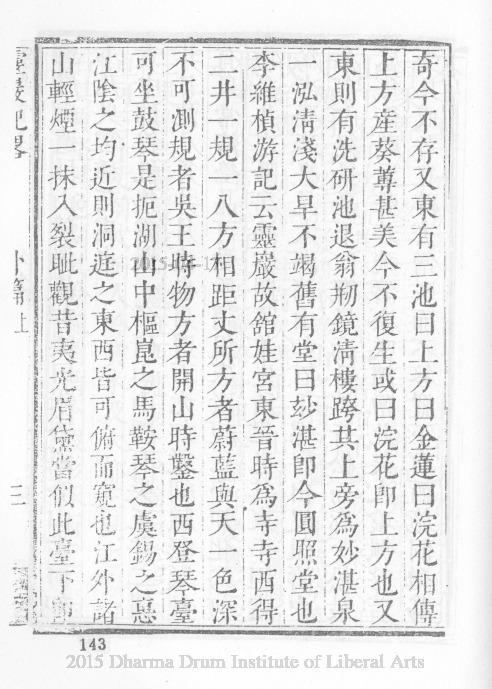 奇今不存又東有三池曰上方曰金蓮曰浣花相傳
上方產葵蓴甚美今不復生或曰浣花卽上方也又
東則有洗硏池退翁剏鏡淸樓跨其上旁爲妙湛泉
一泓淸淺大旱不竭舊有堂曰玅湛卽今圓照堂也
李維楨游記云靈巖故舘娃宮東晉時爲寺寺西得
二井一規一八方相距丈所方者蔚藍與天一色深
不可測規者吳王時物方者開山時鑿也西登琴臺
可坐鼓琴是扼湖山中樞崑之馬鞍琴之虞錫之惠
江陰之均近則洞庭之東西皆可俯而窺也江外諸
山輕煙一抹入裂眦觀昔夷光眉黛當似此臺下
靈巖紀畧
外篇上
三
143
2015 Dharma Drum Institute of Liberal Arts